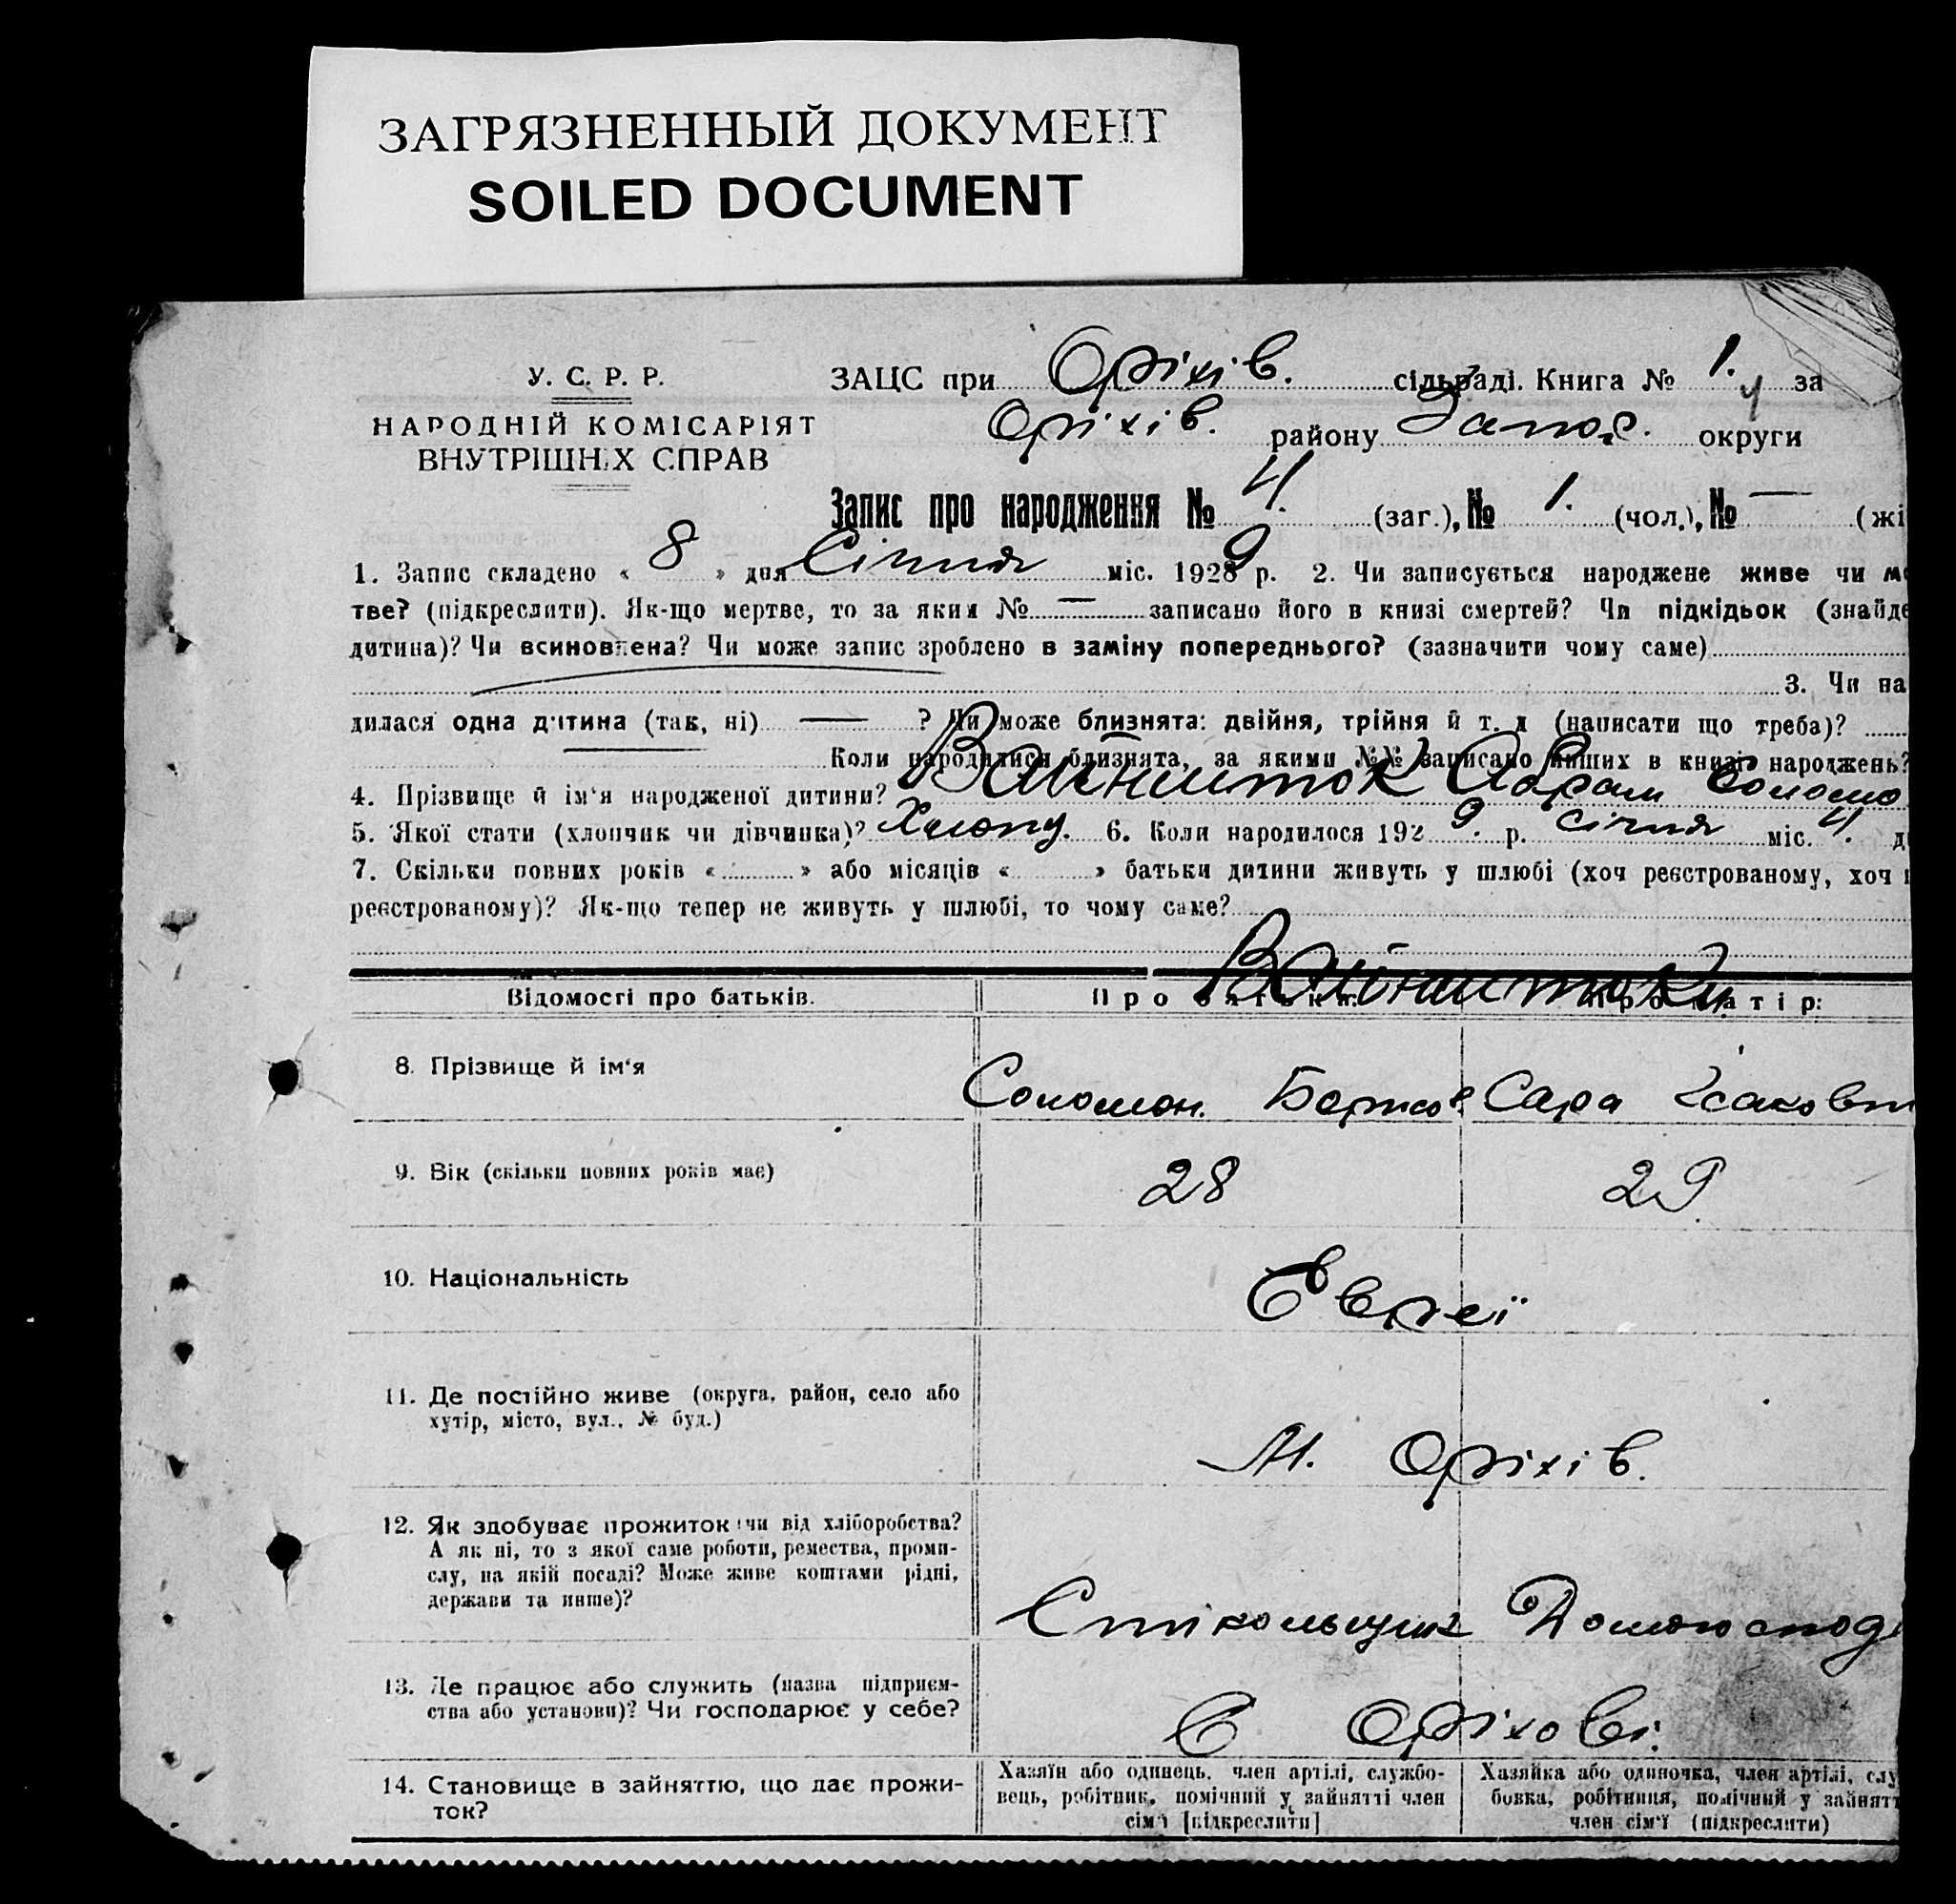 ЗАГРЯЗНЕННЫЙ ДОКУМЕНТ
SOILED DOCUMENT
У. С. Р. Р.
НАРОДНІЙ КОМІСАРІЯТ
ВНУТРІШНІХ СПРАВ
ЗАЦС при Оріхів. сільраді. Книга № 1. за
Оріхів. району Запор. округи
Запис про народження № 4. (заг.), № 1. (чол.), № — (жі
1. Запис складено « 8 » дня Січня міс. 1929 р. 2. Чи записується народжене живе чи ме
тве? (підкреслити). Як-що мертве, то за яким № — записано його в книзі смертей? Чи підкідьок (знайде
дитина)? Чи всиновлена? Чи може запис зроблено в заміну попереднього? (зазначити чому саме)
3. Чи на
дилася одна дитина (так, ні) — ? Чи може близнята: двійня, трійня й т. д (написати що треба)?
Коли народилися близнята, за якими №№ записано инших в книзі народжень?
4. Прізвище й ім‘я народженої дитини? Вайншток Абрам Соломо
5. Якої стати (хлопчик чи дівчинка)? Хлопч. 6. Коли народилося 1929. р. січня міс. 4. д
7. Скільки повних років « » або місяців « » батьки дитини живуть у шлюбі (хоч реєстрованому, хоч
реєстрованому)? Як-що тепер не живуть у шлюбі, то чому саме?
Вайнштоки
Відомості про батьків. Про батька: Про матір:
8. Прізвище й ім‘я Соломон. Борисов. Сара Ісаковн
9. Вік (скільки повних років має) 28 29
10. Національність Євреї
11. Де постійно живе (округа, район, село або
хутір, місто, вул., № буд.) М. Оріхів.
12. Як здобуває прожиток (чи від хліборобства?
А як ні, то з якої саме роботи, ремества, проми-
слу, на якій посаді? Може живе коштами рідні,
держави та инше)? Стікольщик Домогоспод
13. Де працює або служить (назва підприєм-
ства або установи)? Чи господарює у себе? В Оріхові.
14. Становище в зайняттю, що дає прожи-
ток?
Хазяїн або одинець, член артілі, службо-
вець, робітник, помічний у зайнятті член
сім‘ї [підкреслити]
Хазяйка або одиночка, член артілі, слу
бовка, робітниця, помічний у зайнятт
член сім‘ї (підкреслити)